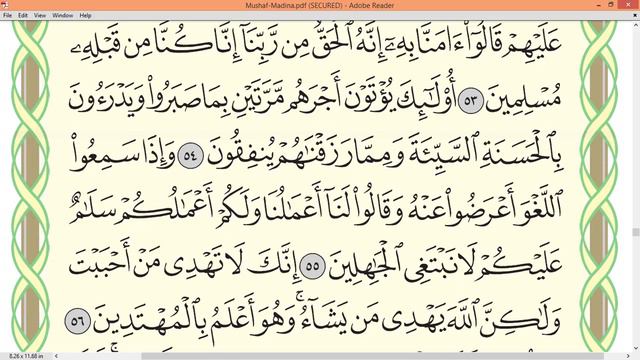 Mushaf-Madina.pdf (SECURED) - Adobe Reader
File Edit View Window Help
عَلَيْهِمْ قَالُوٓا۟ ءَامَنَّا بِهِۦٓ إِنَّهُ ٱلْحَقُّ مِن رَّبِّنَآ إِنَّا كُنَّا مِن قَبْلِهِۦ
مُسْلِمِينَ ٥٣ أُو۟لَـٰٓئِكَ يُؤْتَوْنَ أَجْرَهُم مَّرَّتَيْنِ بِمَا صَبَرُوا۟ وَيَدْرَءُونَ
بِٱلْحَسَنَةِ ٱلسَّيِّئَةَ وَمِمَّا رَزَقْنَـٰهُمْ يُنفِقُونَ ٥٤ وَإِذَا سَمِعُوا۟
ٱللَّغْوَ أَعْرَضُوا۟ عَنْهُ وَقَالُوا۟ لَنَآ أَعْمَـٰلُنَا وَلَكُمْ أَعْمَـٰلُكُمْ سَلَـٰمٌ
عَلَيْكُمْ لَا نَبْتَغِى ٱلْجَـٰهِلِينَ ٥٥ إِنَّكَ لَا تَهْدِى مَنْ أَحْبَبْتَ
وَلَـٰكِنَّ ٱللَّهَ يَهْدِى مَن يَشَآءُ ۚ وَهُوَ أَعْلَمُ بِٱلْمُهْتَدِينَ ٥٦
8.26 x 11.88 in